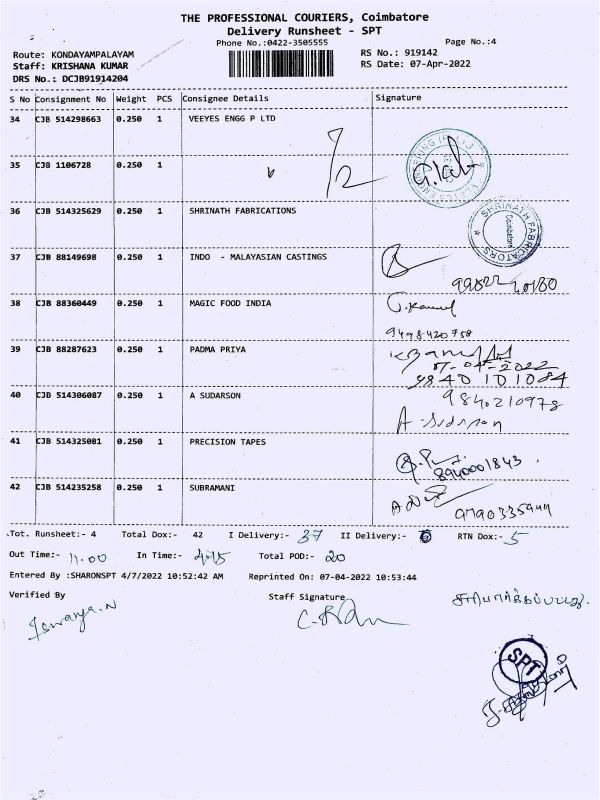 THE PROFESSIONAL COURIERS, Coimbatore
Delivery Runsheet - SPT
Phone No.:0422-3505555
Page No.:4
Route: KONDAYAMPALAYAM
RS No.: 919142
Staff: KRISHANA KUMAR
RS Date: 07-Apr-2022
DRS No.: DCJB91914204
S No Consignment No Weight PCS Consignee Details Signature
34 CJB 514298663 0.250 1 VEEYES ENGG P LTD
35 CJB 1106728 0.250 1
36 CJB 514325629 0.250 1 SHRINATH FABRICATIONS
SHRINATH FABRICATORS
Coimbatore
37 CJB 88149698 0.250 1 INDO - MALAYASIAN CASTINGS
38 CJB 88360449 0.250 1 MAGIC FOOD INDIA
9498420758
39 CJB 88287623 0.250 1 PADMA PRIYA
07-04-2022
9840101084
40 CJB 514306087 0.250 1 A SUDARSON
9840210978
A-Sudarson
41 CJB 514325081 0.250 1 PRECISION TAPES
8940001843
42 CJB 514235258 0.250 1 SUBRAMANI
9790335944
Tot. Runsheet:- 4 Total Dox:- 42 I Delivery:- 37 II Delivery:- RTN Dox:- 5
Out Time:- 11.00 In Time:- 4.15 Total POD:- 20
Entered By :SHARONSPT 4/7/2022 10:52:42 AM Reprinted On: 07-04-2022 10:53:44
Verified By Staff Signature
சரிபார்க்கப்பட்டது.
SPT